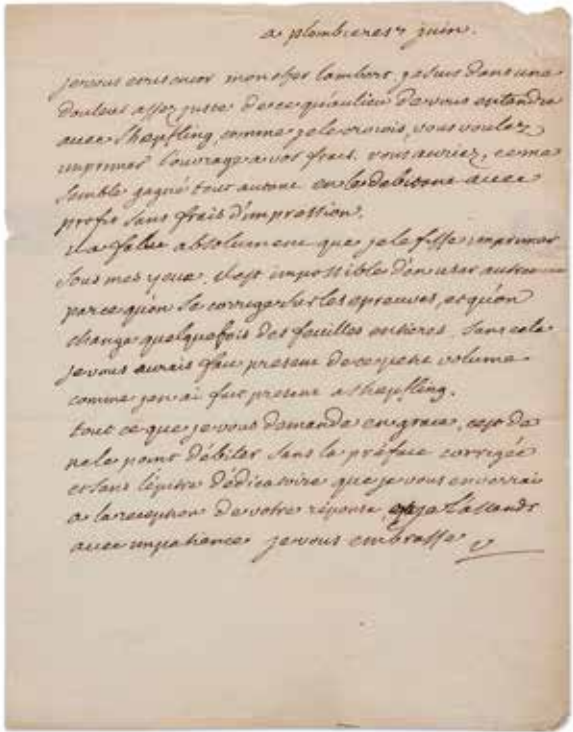 a plombieres 7 juin.
je vous ecris encor mon cher lambert. je suis dans une
douleur assez juste de ce qu'au lieu de vous entendre
avec Shepfling, comme je le croiois, vous voulez
imprimer l'ouvrage a vos frais. vous auriez, ce me
semble gagné tout autant en le debitant avec
profit sans frais d'impression.
il a falu absolument que je le fisse imprimer
sous mes yeux. il est impossible d'en user autrement
parce qu'on se corrige sur les epreuves, et qu'on
change quelquefois des feuilles entieres. sans cela
je vous aurais fait present de ce petit volume
comme j'en ai fait present a Shepfling.
tout ce que je vous demande en grace, c'est de
ne le point débiter sans la préface corrigée
et sans l'epitre dédicatoire que je vous enverrai
a la reception de votre réponse que je l'attends
avec impatience je vous embrasse V